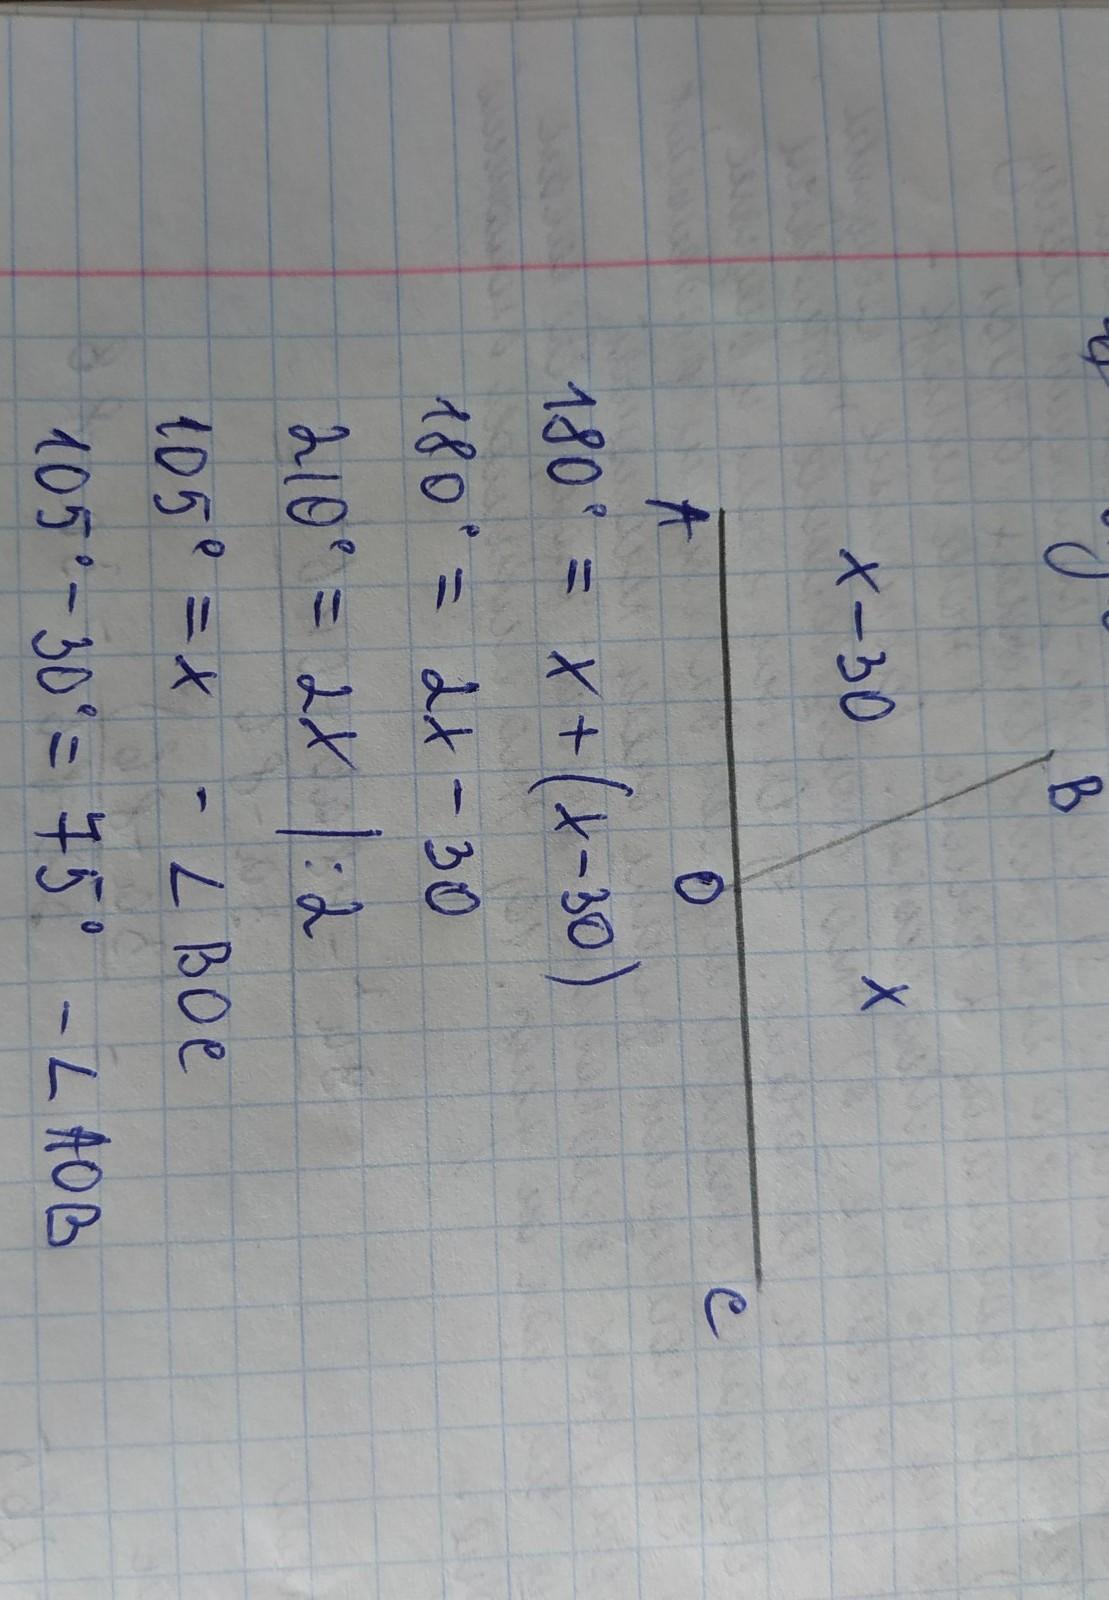 B
x-30
x
A
O
C
180° = x + (x-30)
180° = 2x - 30
210° = 2x |:2
105° = x - ∠BOC
105° - 30° = 75° - ∠AOB